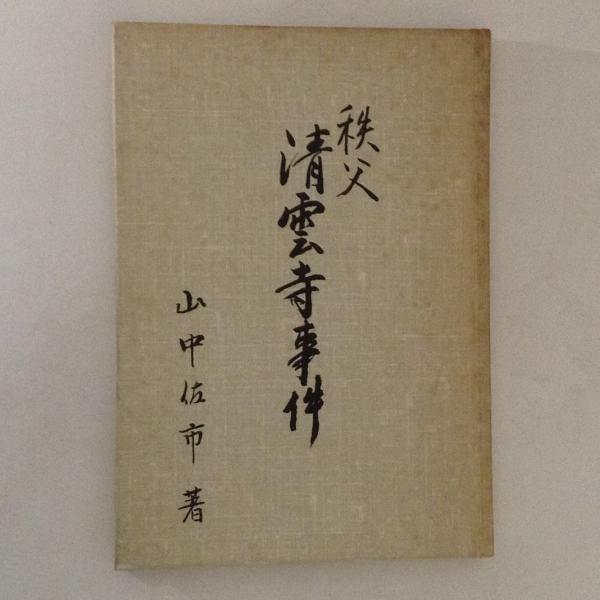 秩父
清雲寺事件
山中佐市著